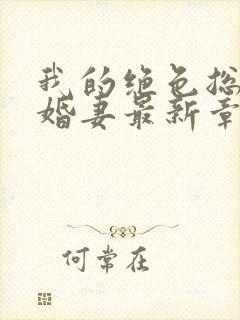 我的绝色总
婚妻最新章
何常在